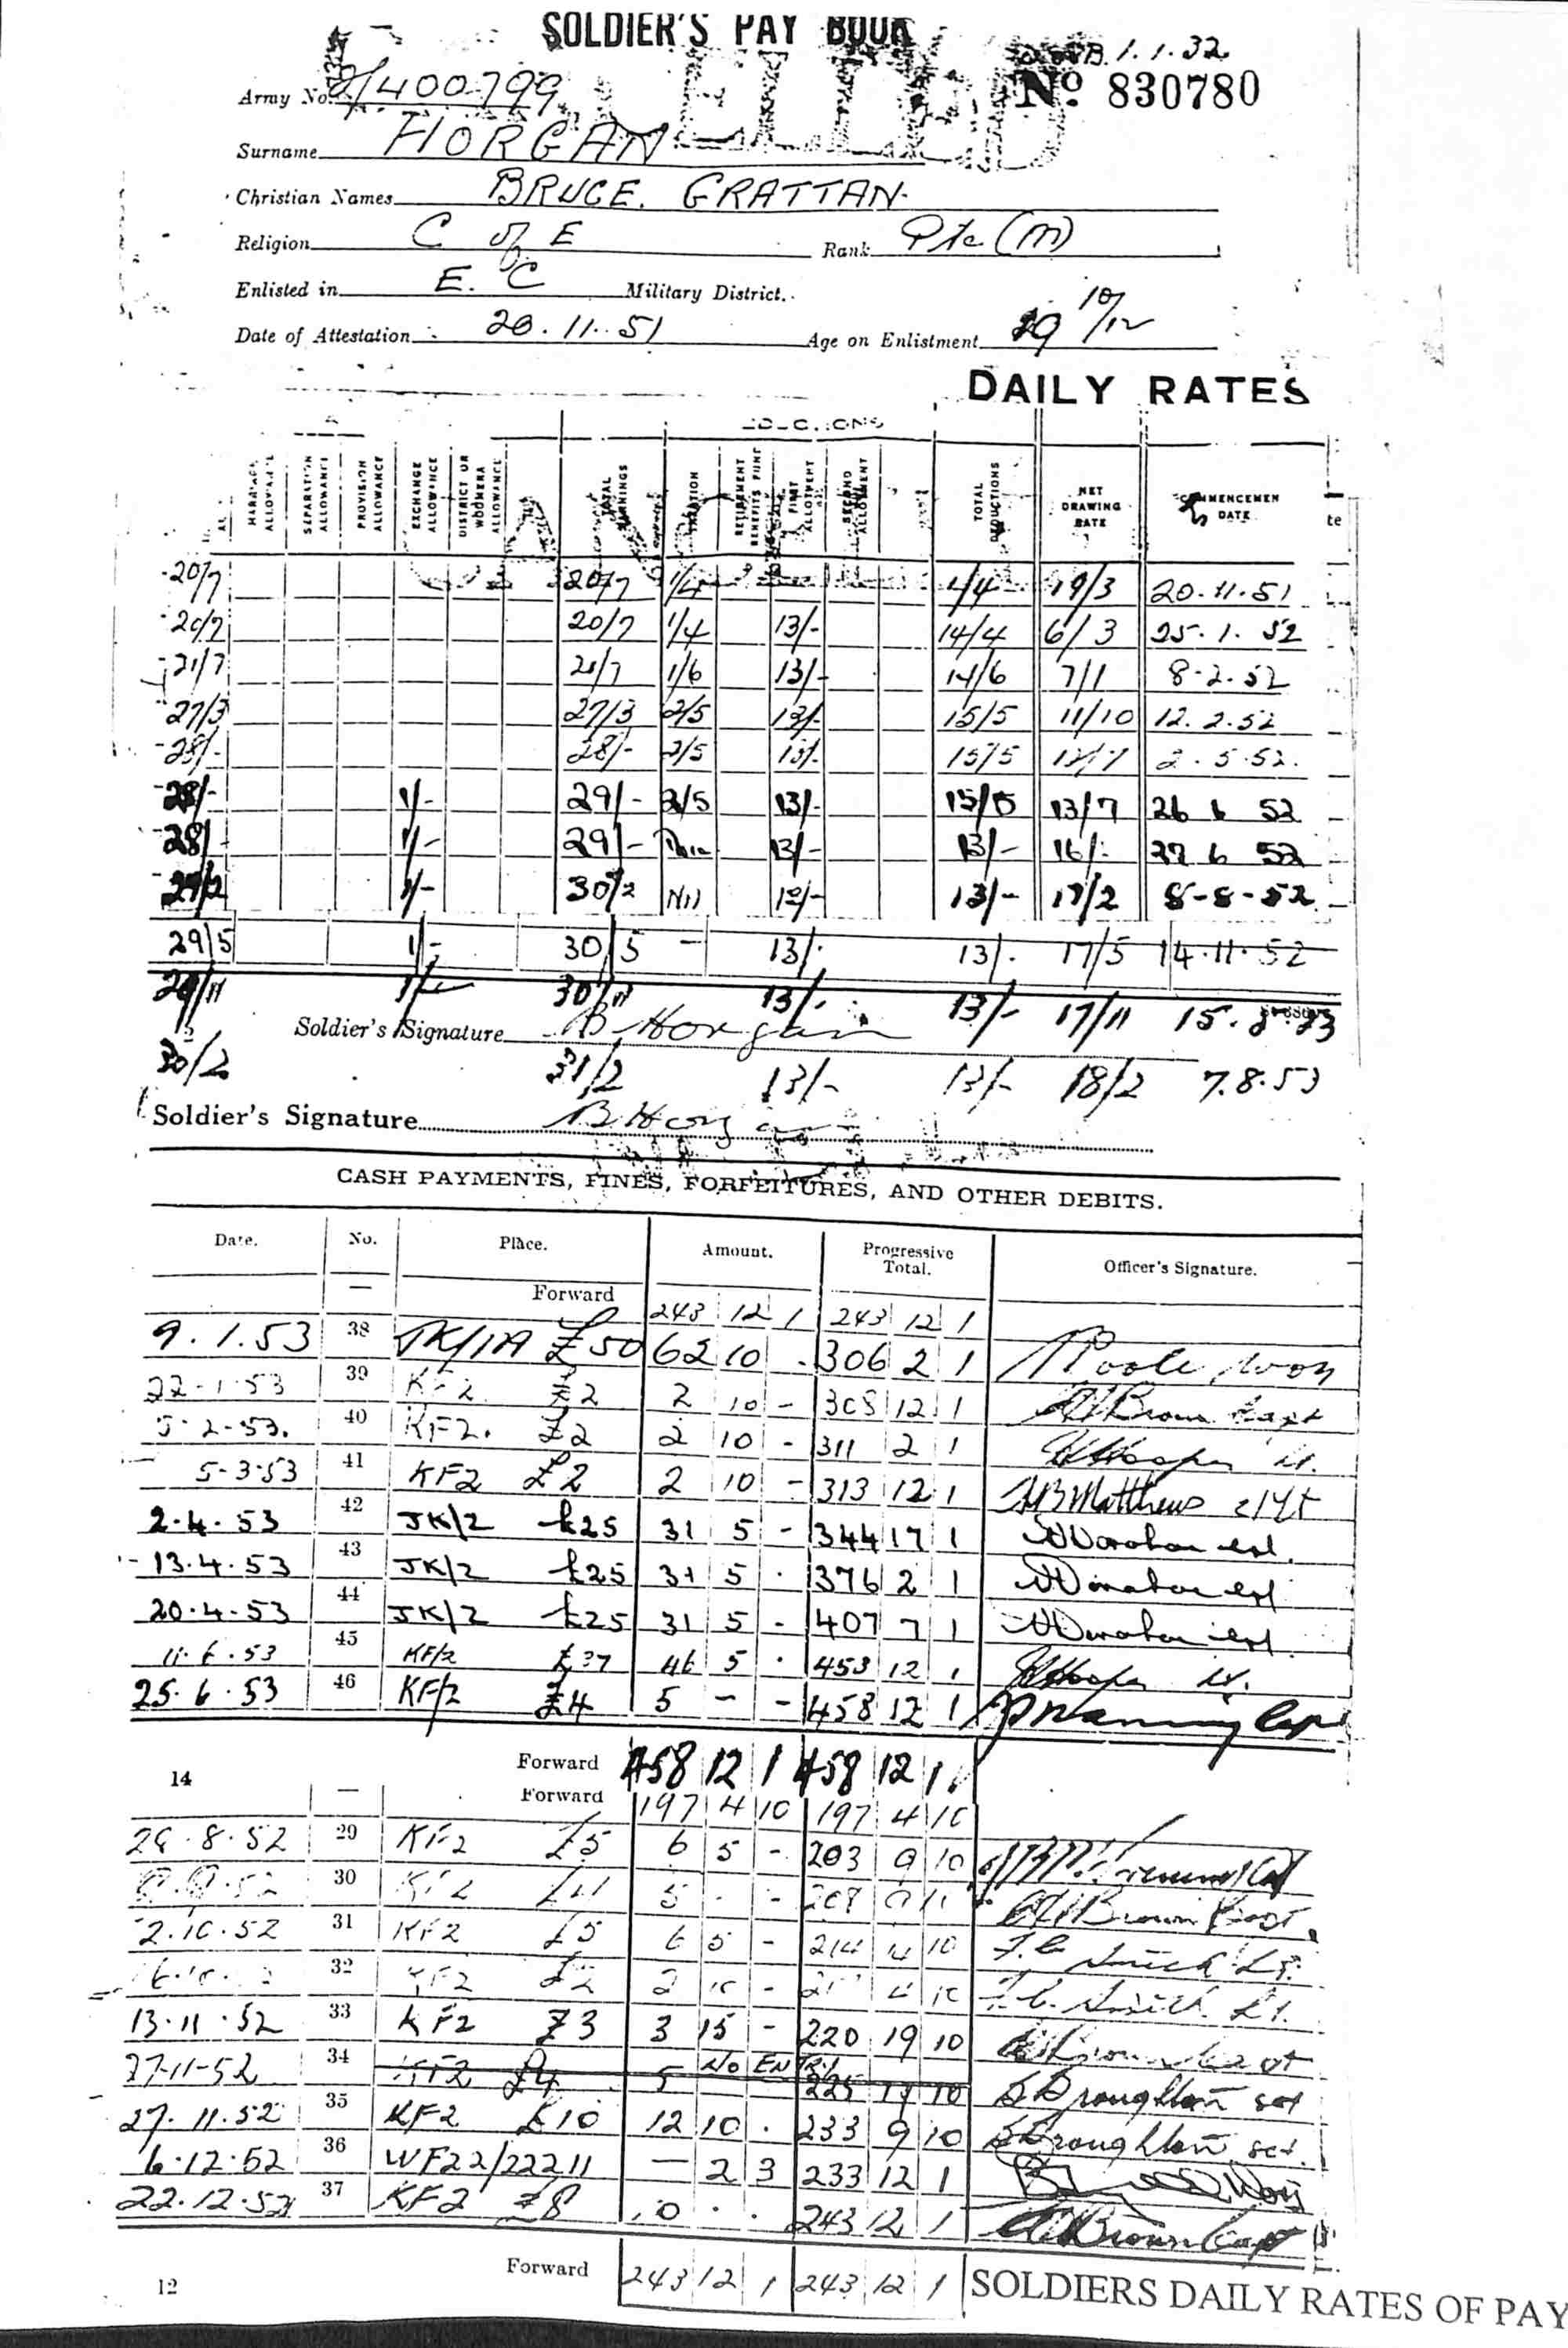 SOLDIER'S PAY BOOK
1.1.32
Army No. 2/400799
CANCELLED
No. 830780
Surname HORGAN
Christian Names BRUCE. GRATTAN.
Religion C of E Rank Pte (M)
Enlisted in E. C Military District.
Date of Attestation 20.11.51 Age on Enlistment 19 10/12
DAILY RATES
MARRIAGE ALLOWANCE SEPARATION ALLOWANCE PROVISION ALLOWANCE EXCHANGE ALLOWANCE DISTRICT OR WOOMERA ALLOWANCE TOTAL EARNINGS TAXATION RETIREMENT BENEFITS FUND FIRST ALLOTMENT SECOND ALLOTMENT TOTAL DEDUCTIONS NET DRAWING RATE COMMENCEMEN DATE te
20/7 20/7 1/4 1/4 19/3 20.11.51
20/7 20/7 1/4 13/- 14/4 6/3 25.1.52
21/7 21/7 1/6 13/- 14/6 7/1 8.2.52
27/3 27/3 2/5 13/- 15/5 11/10 12.2.52
28/- 28/- 2/5 13/- 15/5 12/7 2.5.52.
28/- 1/- 29/- 2/5 13/- 15/5 13/7 26 6 52
28/- 1/- 29/- 13/- 13/- 16/- 27 6 52
29/2 1/- 30/2 Nil 13/- 13/- 17/2 8-8-52
29/5 1/- 30/5 - 13/- 13/- 17/5 14.11.52
29/11 1/- 30/11 13/- 13/- 17/11
Soldier's Signature B Horgan
30/2 31/2 13/- 13/- 18/2 7.8.53
Soldier's Signature B Horgan
CASH PAYMENTS, FINES, FORFEITURES, AND OTHER DEBITS.
Date. No. Place. Amount. Progressive Total. Officer's Signature.
— Forward 243 12 1 243 12 1
9.1.53 38 £50 62 10 - 306 2 1 Poole
22-1-53 39 KF2 £2 2 10 - 308 12 1 Brown Capt
5-2-53. 40 KF2. £2 2 10 - 311 2 1 Hooper Lt.
5-3-53 41 KF2 £2 2 10 - 313 12 1 Matthews
2.4.53 42 JK/2 £25 31 5 - 344 17 1
13.4.53 43 JK/2 £25 31 5 - 376 2 1
20.4.53 44 JK/2 £25 31 5 - 407 7 1
11.6.53 45 KF/2 £37 46 5 - 453 12 1 Hooper Lt.
25.6.53 46 KF/2 £4 5 - - 458 12 1
14 Forward 458 12 1 458 12 1
— Forward 197 4 10 197 4 10
28.8.52 29 KF2 £5 6 5 - 203 9 10
30 KF2 £4 5 - - 208 9 10 Brown Capt.
2.10.52 31 KF2 £5 6 5 - 214 14 10 F. C. Smith Lt.
32 KF2 £2 2 10 - 217 4 10 F. C. Smith Lt.
13.11.52 33 KF2 £3 3 15 - 220 19 10 Brown Capt
27-11-52 34 KF2 £4 5 NO ENTRY 225 19 10 Broughton
27.11.52 35 KF2 £10 12 10 . 233 9 10 Broughton
6.12.52 36 WF22/22211 — 2 3 233 12 1
22.12.52 37 KF2 £8 10 . . 243 12 1 Brown Capt
12 Forward 243 12 1 243 12 1
SOLDIERS DAILY RATES OF PAY